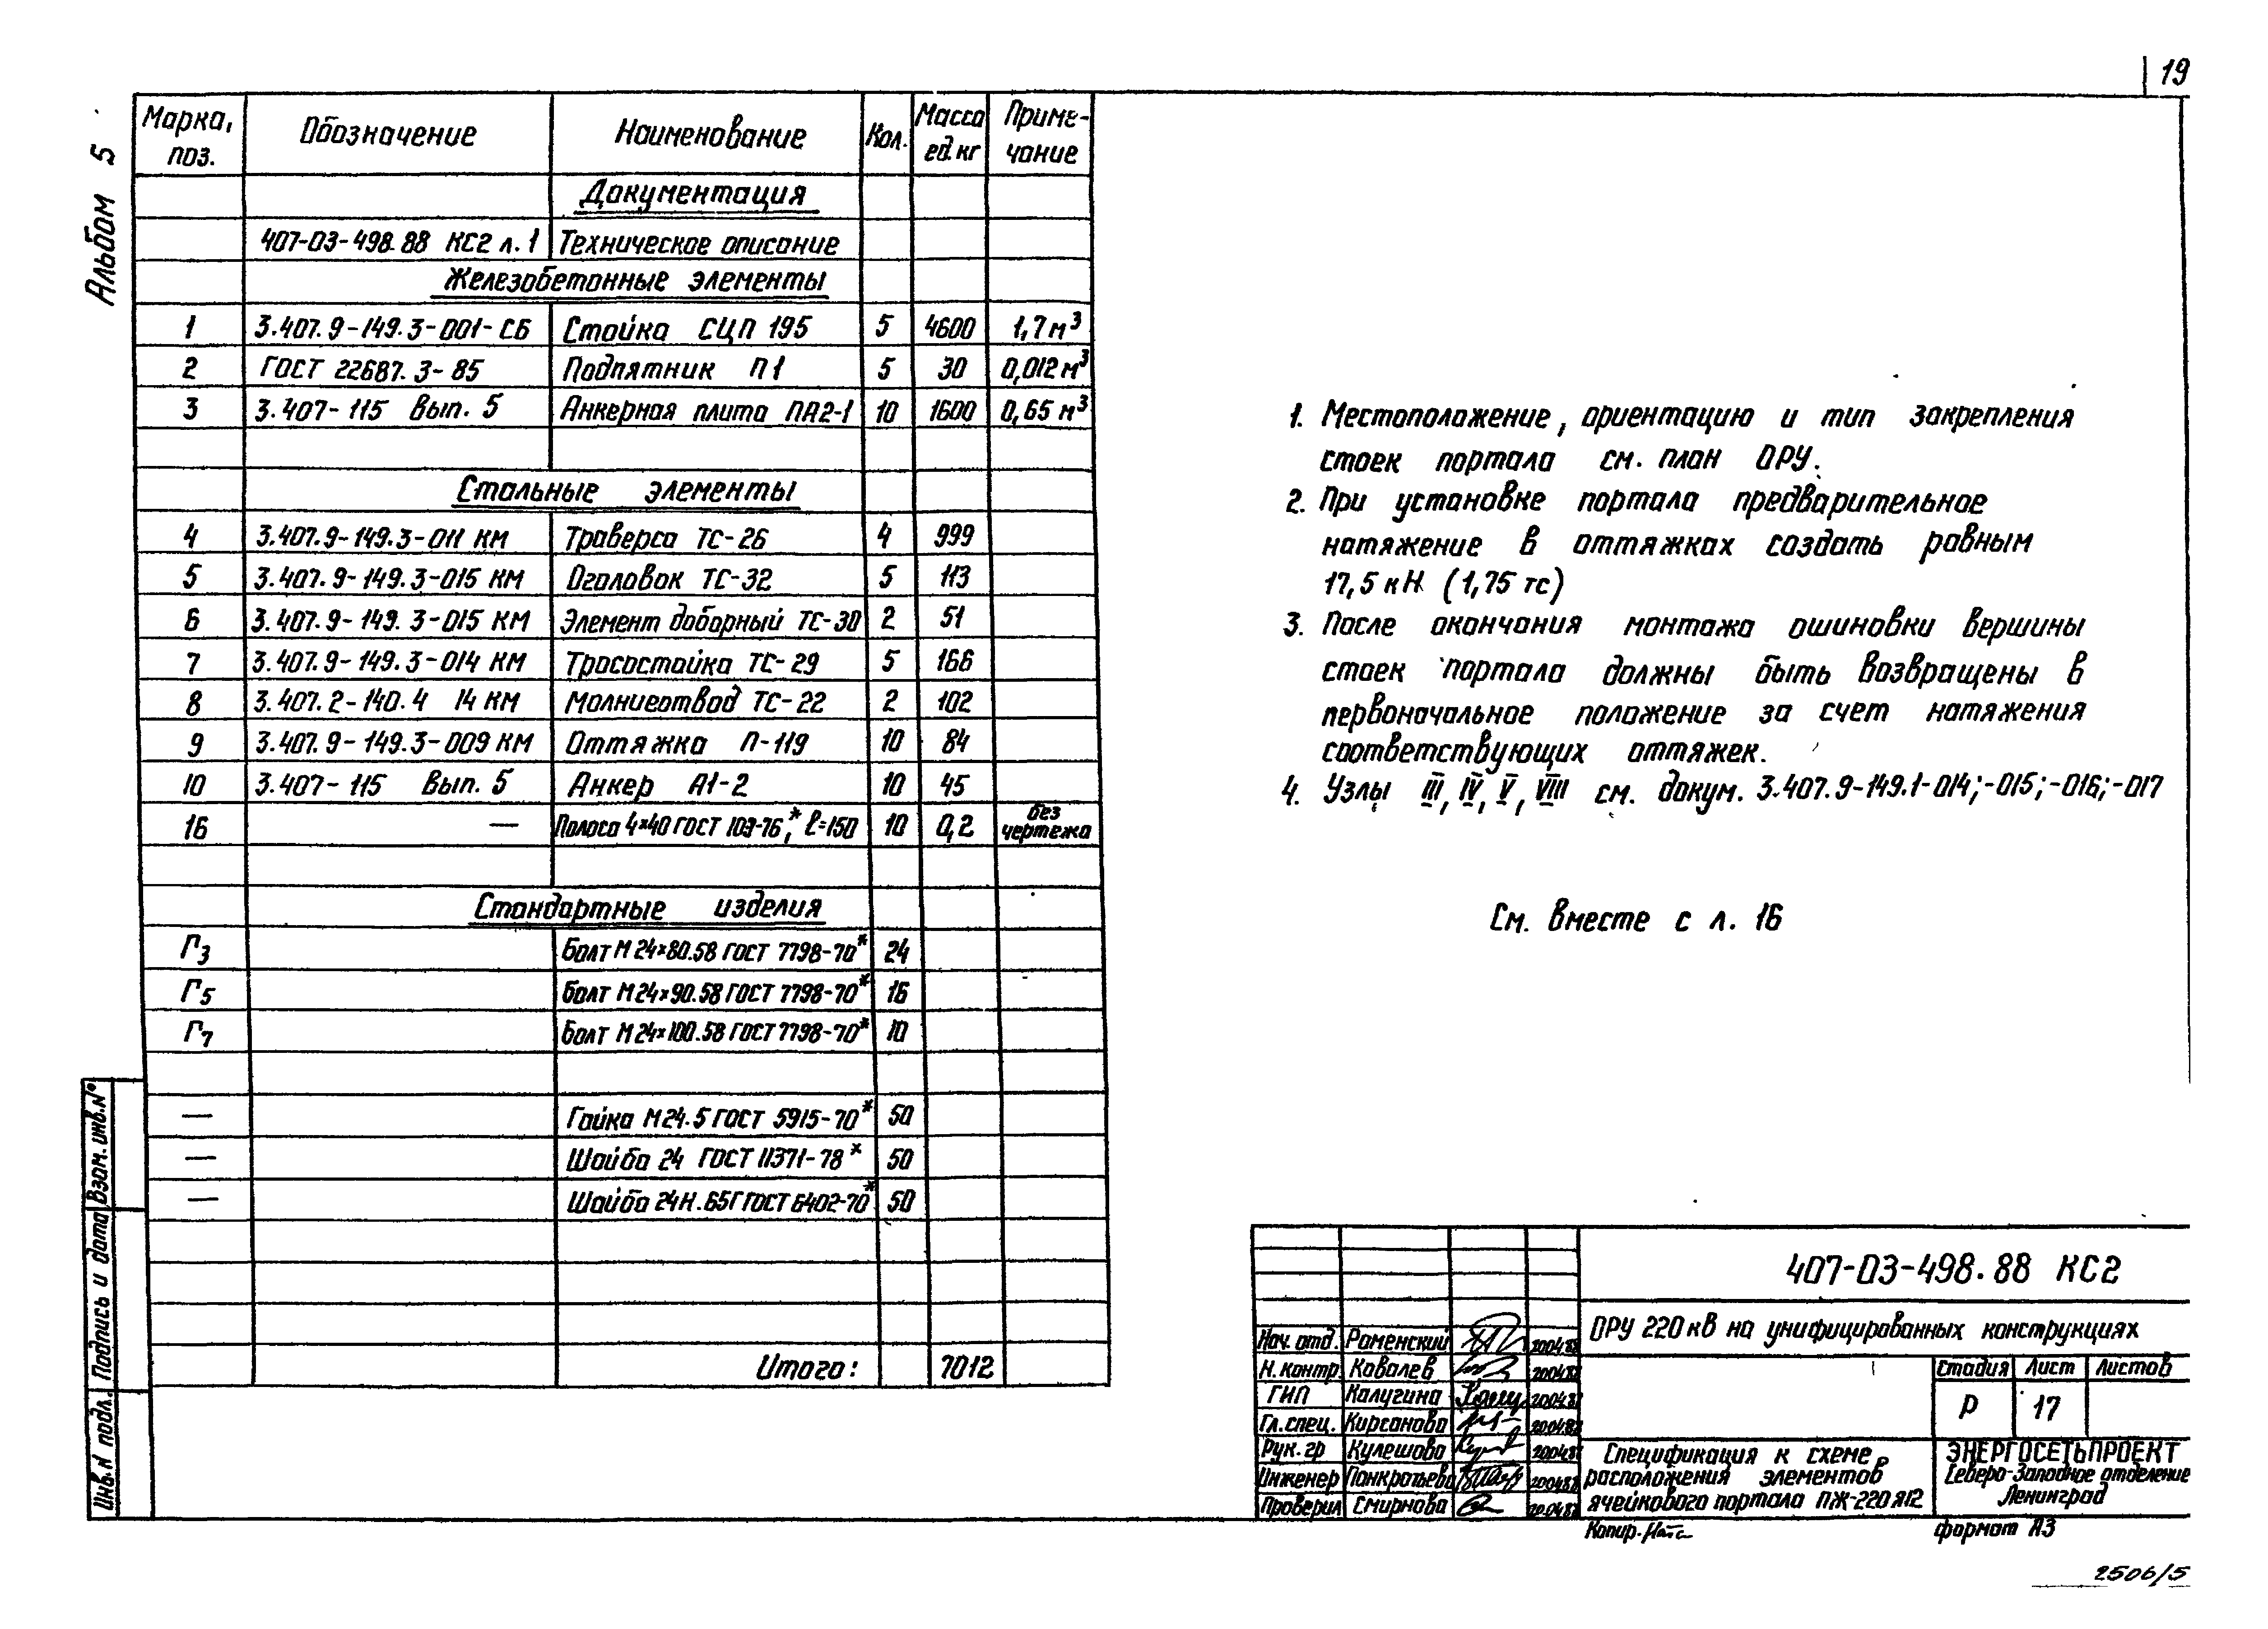 19
Альбом 5
Марка, поз. Обозначение Наименование Кол. Масса ед.кг Приме-чание
Документация
407-03-498.88 КС2 л.1 Техническое описание
Железобетонные элементы
1 3.407.9-149.3-001-СБ Стойка СЦП 195 5 4600 1,7м³
2 ГОСТ 22687.3-85 Подпятник П1 5 30 0,012м³
3 3.407-115 Вып. 5 Анкерная плита ПА2-1 10 1600 0,65 м³
Стальные элементы
4 3.407.9-149.3-011 КМ Траверса ТС-26 4 999
5 3.407.9-149.3-015 КМ Оголовок ТС-32 5 113
6 3.407.9-149.3-015 КМ Элемент доборный ТС-30 2 51
7 3.407.9-149.3-014 КМ Тросостойка ТС-29 5 166
8 3.407.2-140.4 14 КМ Молниеотвод ТС-22 2 102
9 3.407.9-149.3-009 КМ Оттяжка П-119 10 84
10 3.407-115 Вып. 5 Анкер А1-2 10 45
16 — Полоса 4×40 ГОСТ 103-76*, ℓ=150 10 0,2 без чертежа
Стандартные изделия
Г3 Болт М 24×80.58 ГОСТ 7798-70* 24
Г5 Болт М 24×90.58 ГОСТ 7798-70* 16
Г7 Болт М 24×100.58 ГОСТ 7798-70* 10
— Гайка М24.5 ГОСТ 5915-70* 50
— Шайба 24 ГОСТ 11371-78* 50
— Шайба 24Н.65Г ГОСТ 6402-70* 50
Итого: 7012
1. Местоположение, ориентацию и тип закрепления
стоек портала см. план ОРУ.
2. При установке портала предварительное
натяжение в оттяжках создать равным
17,5 кН (1,75 тс)
3. После окончания монтажа ошиновки вершины
стоек портала должны быть возвращены в
первоначальное положение за счет натяжения
соответствующих оттяжек.
4. Узлы III, IV, V, VIII см. докум. 3.407.9-149.1-014;-015;-016;-017
См. вместе с л. 16
Взам.инв.№
Подпись и дата
Инв.№ подл.
407-03-498.88 КС2
ОРУ 220 кВ на унифицированных конструкциях
Нач. отд. Роменский 20.04.88
Н. контр. Ковалев 20.04.88
ГИП Калугина 20.04.88
Гл. спец. Кирсанова 20.04.88
Рук. гр Кулешова 20.04.88
Инженер Панкратьева 20.04.88
Проверил Смирнова 20.04.88
Стадия Лист Листов
Р 17
Спецификация к схеме
расположения элементов
ячейкового портала ПЖ-220Я12
ЭНЕРГОСЕТЬПРОЕКТ
Северо-Западное отделение
Ленинград
Копир. Ната
формат А3
2506/5